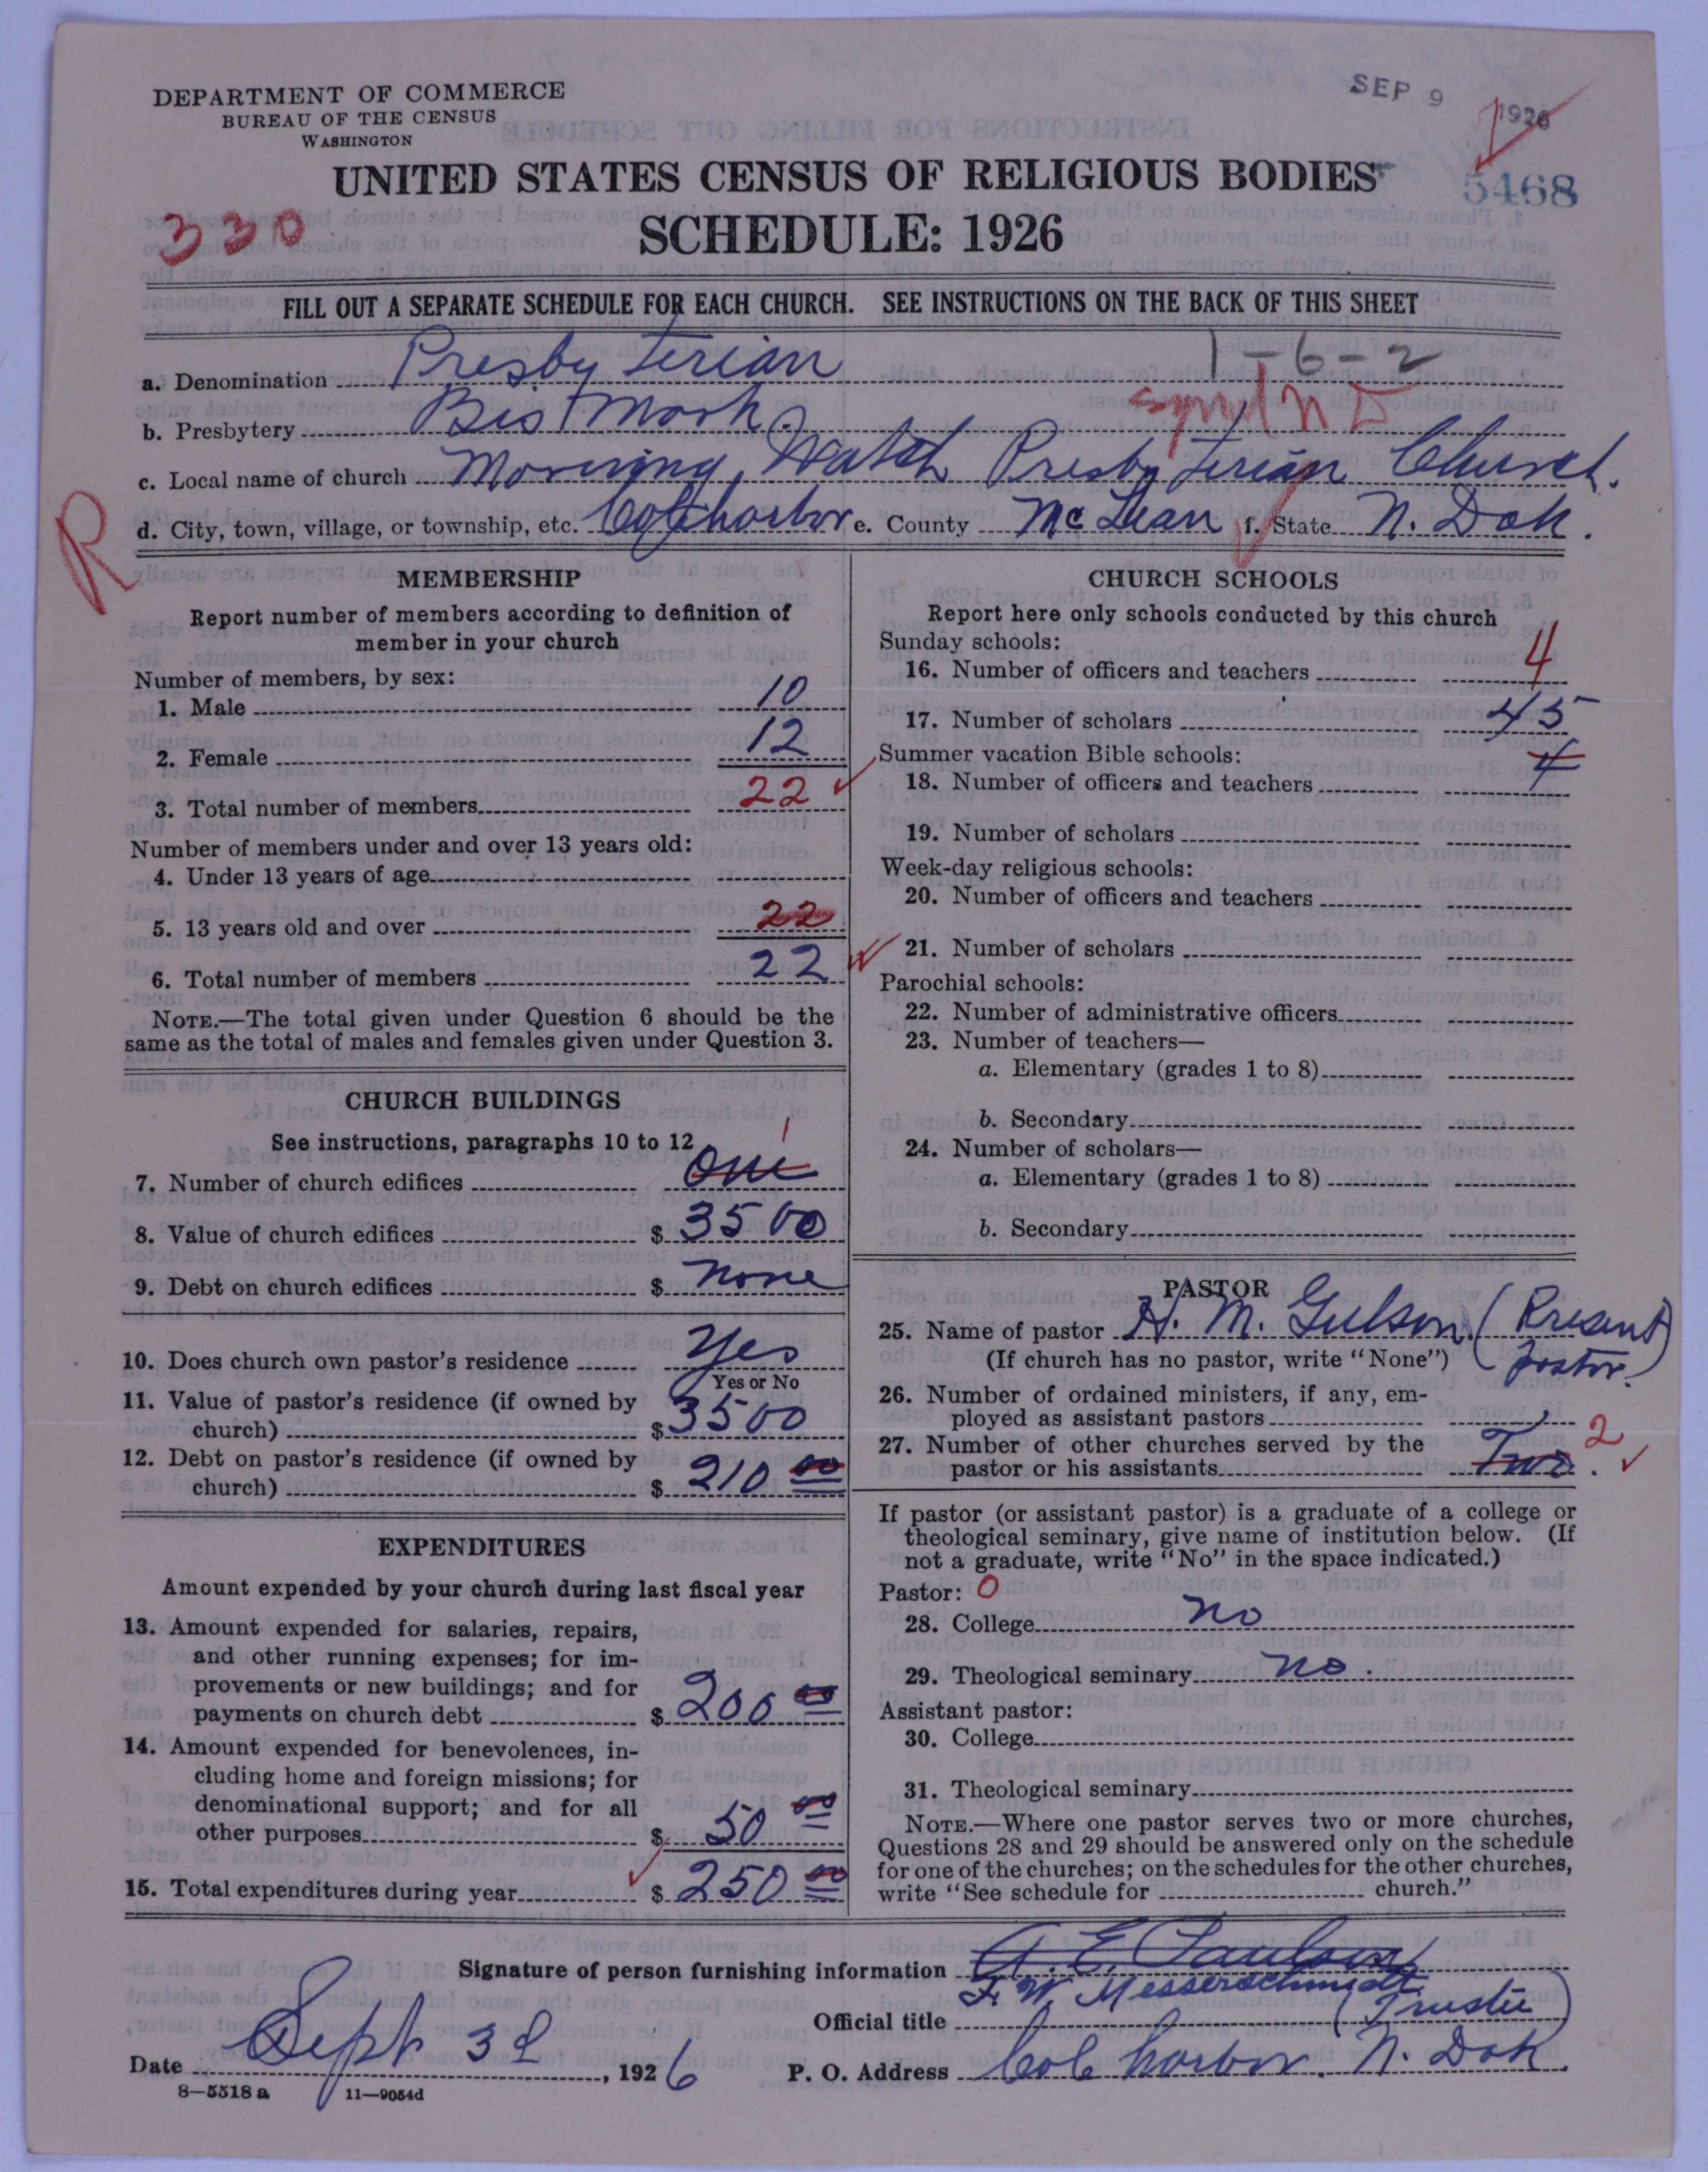 DEPARTMENT OF COMMERCE
BUREAU OF THE CENSUS
WASHINGTON
SEP 9 1926
UNITED STATES CENSUS OF RELIGIOUS BODIES
5468
330
SCHEDULE: 1926
FILL OUT A SEPARATE SCHEDULE FOR EACH CHURCH. SEE INSTRUCTIONS ON THE BACK OF THIS SHEET
1-6-2
a. Denomination Presbyterian
b. Presbytery Bismark.
c. Local name of church Morning Watch Presbyterian Church.
d. City, town, village, or township, etc. Colharbor e. County McLean f. State N. Dak.
R
MEMBERSHIP
Report number of members according to definition of
member in your church
Number of members, by sex:
1. Male 10
2. Female 12
3. Total number of members 22
Number of members under and over 13 years old:
4. Under 13 years of age
5. 13 years old and over 22
6. Total number of members 22
NOTE.—The total given under Question 6 should be the
same as the total of males and females given under Question 3.
CHURCH BUILDINGS
See instructions, paragraphs 10 to 12
7. Number of church edifices one 1
8. Value of church edifices $ 3500
9. Debt on church edifices $ none
10. Does church own pastor's residence Yes
Yes or No
11. Value of pastor's residence (if owned by
church) $ 3500
12. Debt on pastor's residence (if owned by
church) $ 210 00
EXPENDITURES
Amount expended by your church during last fiscal year
13. Amount expended for salaries, repairs,
and other running expenses; for im-
provements or new buildings; and for
payments on church debt $ 200 00
14. Amount expended for benevolences, in-
cluding home and foreign missions; for
denominational support; and for all
other purposes $ 50 00
15. Total expenditures during year $ 250 00
CHURCH SCHOOLS
Report here only schools conducted by this church
Sunday schools:
16. Number of officers and teachers 4
17. Number of scholars 45
Summer vacation Bible schools:
18. Number of officers and teachers 4
19. Number of scholars
Week-day religious schools:
20. Number of officers and teachers
21. Number of scholars
Parochial schools:
22. Number of administrative officers
23. Number of teachers—
a. Elementary (grades 1 to 8)
b. Secondary
24. Number of scholars—
a. Elementary (grades 1 to 8)
b. Secondary
PASTOR
25. Name of pastor H. M. Gulson. (Present
(If church has no pastor, write "None") pastor.)
26. Number of ordained ministers, if any, em-
ployed as assistant pastors
27. Number of other churches served by the
pastor or his assistants Two. 2
If pastor (or assistant pastor) is a graduate of a college or
theological seminary, give name of institution below. (If
not a graduate, write "No" in the space indicated.)
Pastor: 0
28. College no
29. Theological seminary no.
Assistant pastor:
30. College
31. Theological seminary
NOTE.—Where one pastor serves two or more churches,
Questions 28 and 29 should be answered only on the schedule
for one of the churches; on the schedules for the other churches,
write "See schedule for church."
Signature of person furnishing information A. E. Paulson
F. W. Messerschmidt
Official title (Trustee)
Date Sept 3d, 1926 P. O. Address Colharbor. N. Dak.
8—5518 a 11—9054d